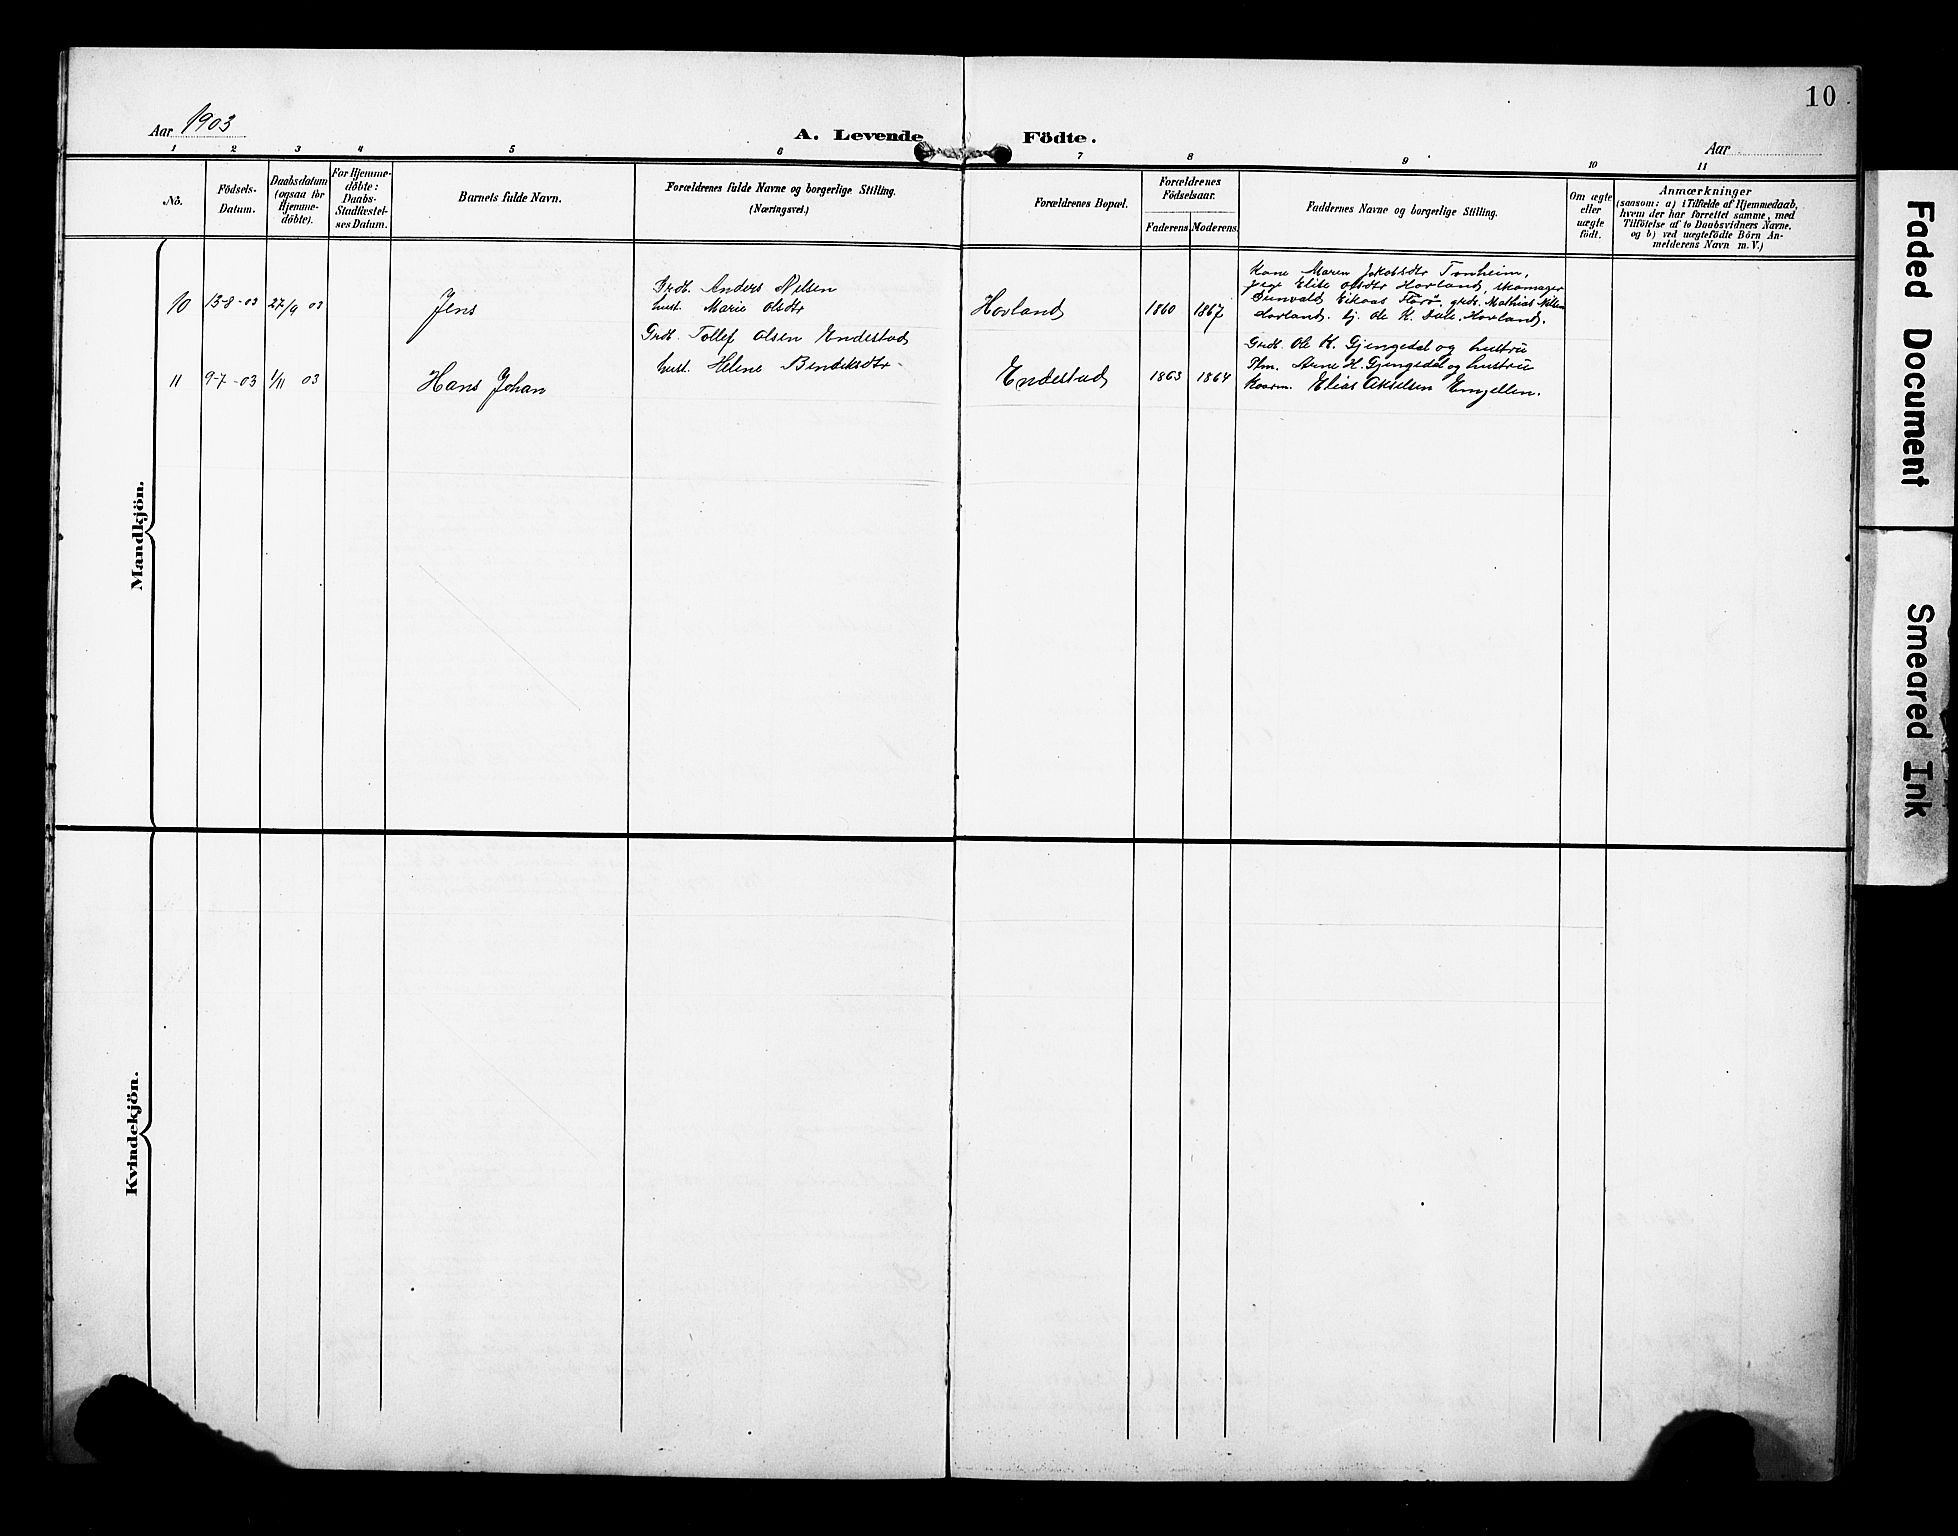 10
Aar 1903
A. Levende Födte.
Aar
1 2 3 4 5 6 7 8 9 10 11
No.
Födsels-
Datum.
Daabsdatum
(ogsaa for
Hjemme-
döbte).
For Hjemme-
döbte:
Daabs-
Stadfæstel-
ses Datum.
Barnets fulde Navn.
Forældrenes fulde Navne og borgerlige Stilling.
(Næringsvei.)
Forældrenes Bopæl.
Forældrenes
Födselsaar.
Faderens Moderens
Faddernes Navne og borgerlige Stilling.
Om ægte
eller
uægte
födt.
Anmærkninger
(saasom: a) i Tilfælde af Hjemmedaab,
hvem der har forrettet samme, med
Tilföielse af to Daabsvidners Navne,
og b) ved uægtefödte Börn An-
melderens Navn m. V.)
Mandkjön.
10 13-8-03 27/9 03
Jens
Grdb. Anders Nilsen
hust. Marie Olsdtr
Hovland
1860 1867
Kone Maren Jakobsdtr Tonheim,
pige Elise Olsdtr Hovland, skomager
Eikaas Florö, grdb. Mathias Nilsen
Hovland. Ole K. Dale, Hovland.
11 9-7-03 1/11 03
Hans Johan
Grdb. Tollef Olsen Endestad
hust. Helene Bendiksdtr
Endestad
1863 1864
Grdb. Ole H. Gjengedal og hustru
Pm. Arne H. Gjengedal og hustru
Kaarm. Elias Akselsen
Kvindekjön.
Faded Document
Smeared Ink